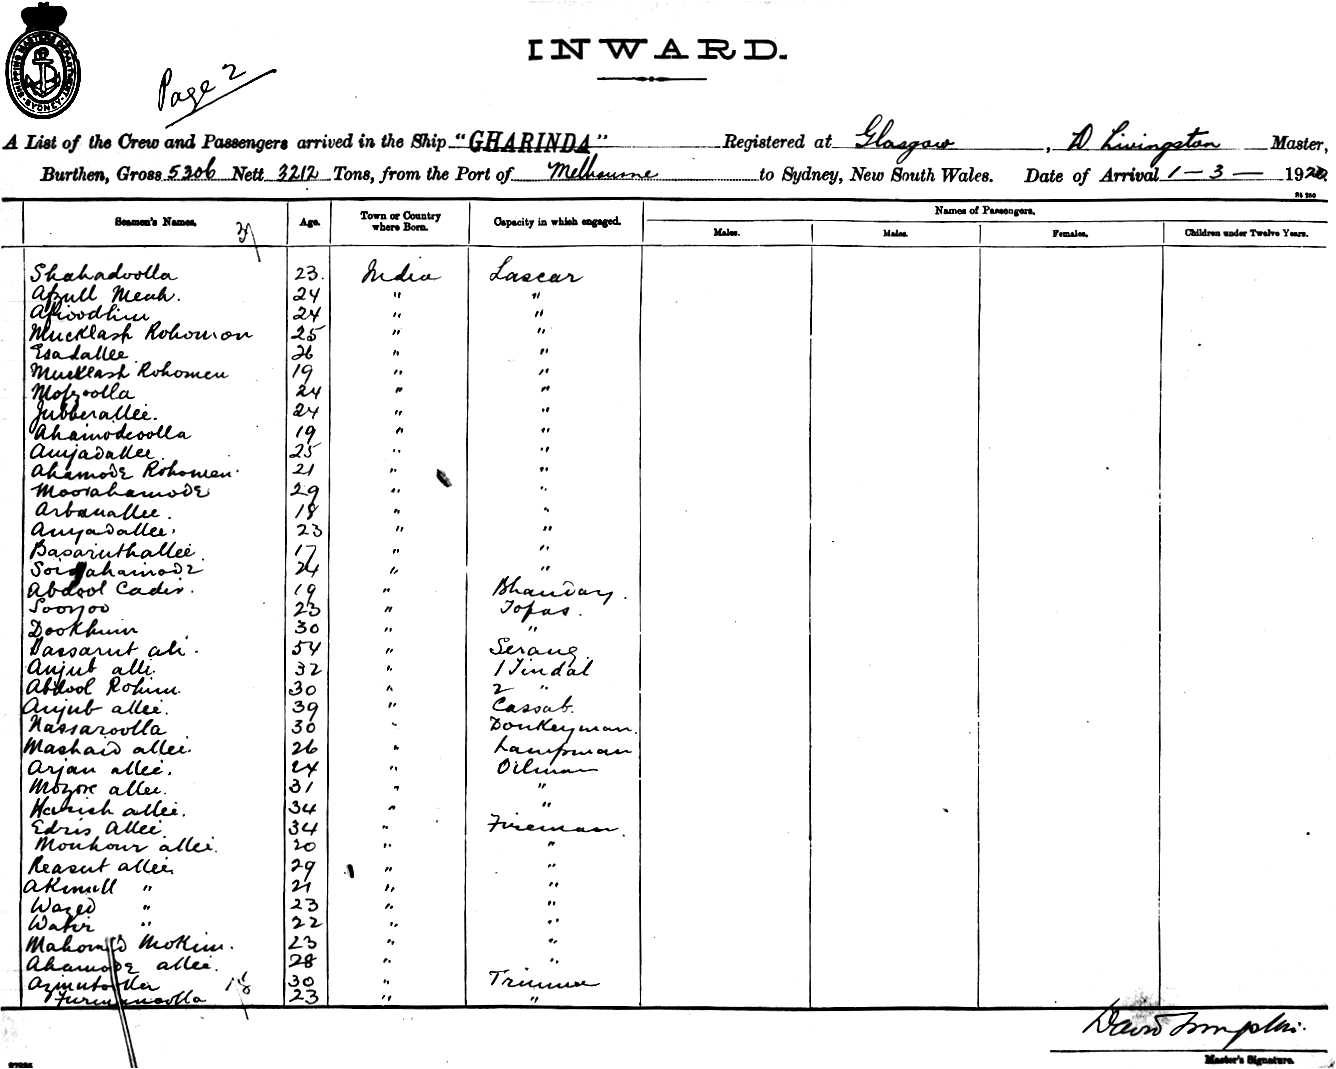 SHIPPING MASTER'S DEPARTMENT SYDNEY
Page 2
INWARD.
A List of the Crew and Passengers arrived in the Ship "GHARINDA" Registered at Glasgow, D Livingston Master,
Burthen, Gross 5306 Nett 3212 Tons, from the Port of Melbourne to Sydney, New South Wales. Date of Arrival 1-3- 192
Seamen's Names. Age. Town or Country where Born. Capacity in which engaged. Names of Passengers.
Males. Males. Females. Children under Twelve Years.
Shahadoolla 23. India Lascar
Afzull Meah. 24 " "
24 " "
Mucklash Rohomon 25 " "
Esadallee 26 " "
Mucklash Rohomen 19 " "
Mofzoolla 24 " "
Jubberallee. 24 " "
Ahamodeoolla 19 " "
Amjadallee 25 " "
Ahamode Rohomen 21 " "
Moosahamode 29 " "
Arbanallee. 18 " "
Amjadallee. 23 " "
Basaruthallee 17 " "
24 " "
Abdool Cader. 19 " Bhandary.
Soorjoo 23 " Topas.
Dookhum 30 " "
Bassarut ali. 54 " Serang
Anjub alli. 32 " 1 Tindal
Abdool Rohim. 30 " 2 "
Anjub allee. 39 " Cassab.
Nassaroolla 30 " Donkeyman.
Mashaid allee. 26 " Lampman
Arjan allee. 24 " Oilman
Mozore allee. 31 " "
allee. 34 " "
Edris Allee 34 " Fireman.
Monhour allee. 20 " "
Reasut allee 29 " "
Akmull " 21 " "
Wazed " 23 " "
" 22 " "
Mahomed Mokim. 23 " "
Ahamode allee. 28 " "
30 " Trimmer
23 " "
Master's Signature.